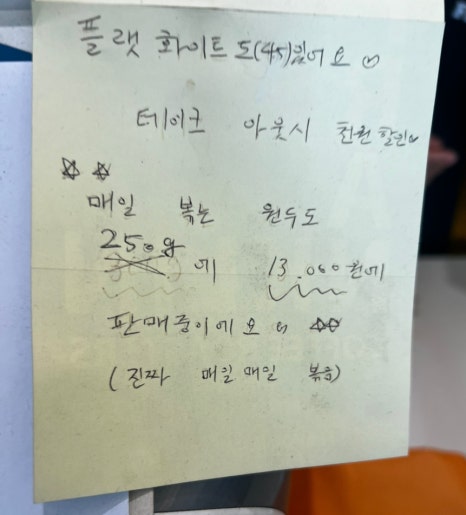 플랫 화이트도 (4.5) 있어요
테이크 아웃시 천원 할인
매일 볶는 원두도
250g
에 13.000원에
판매중이에요
(진짜 매일매일 볶음)